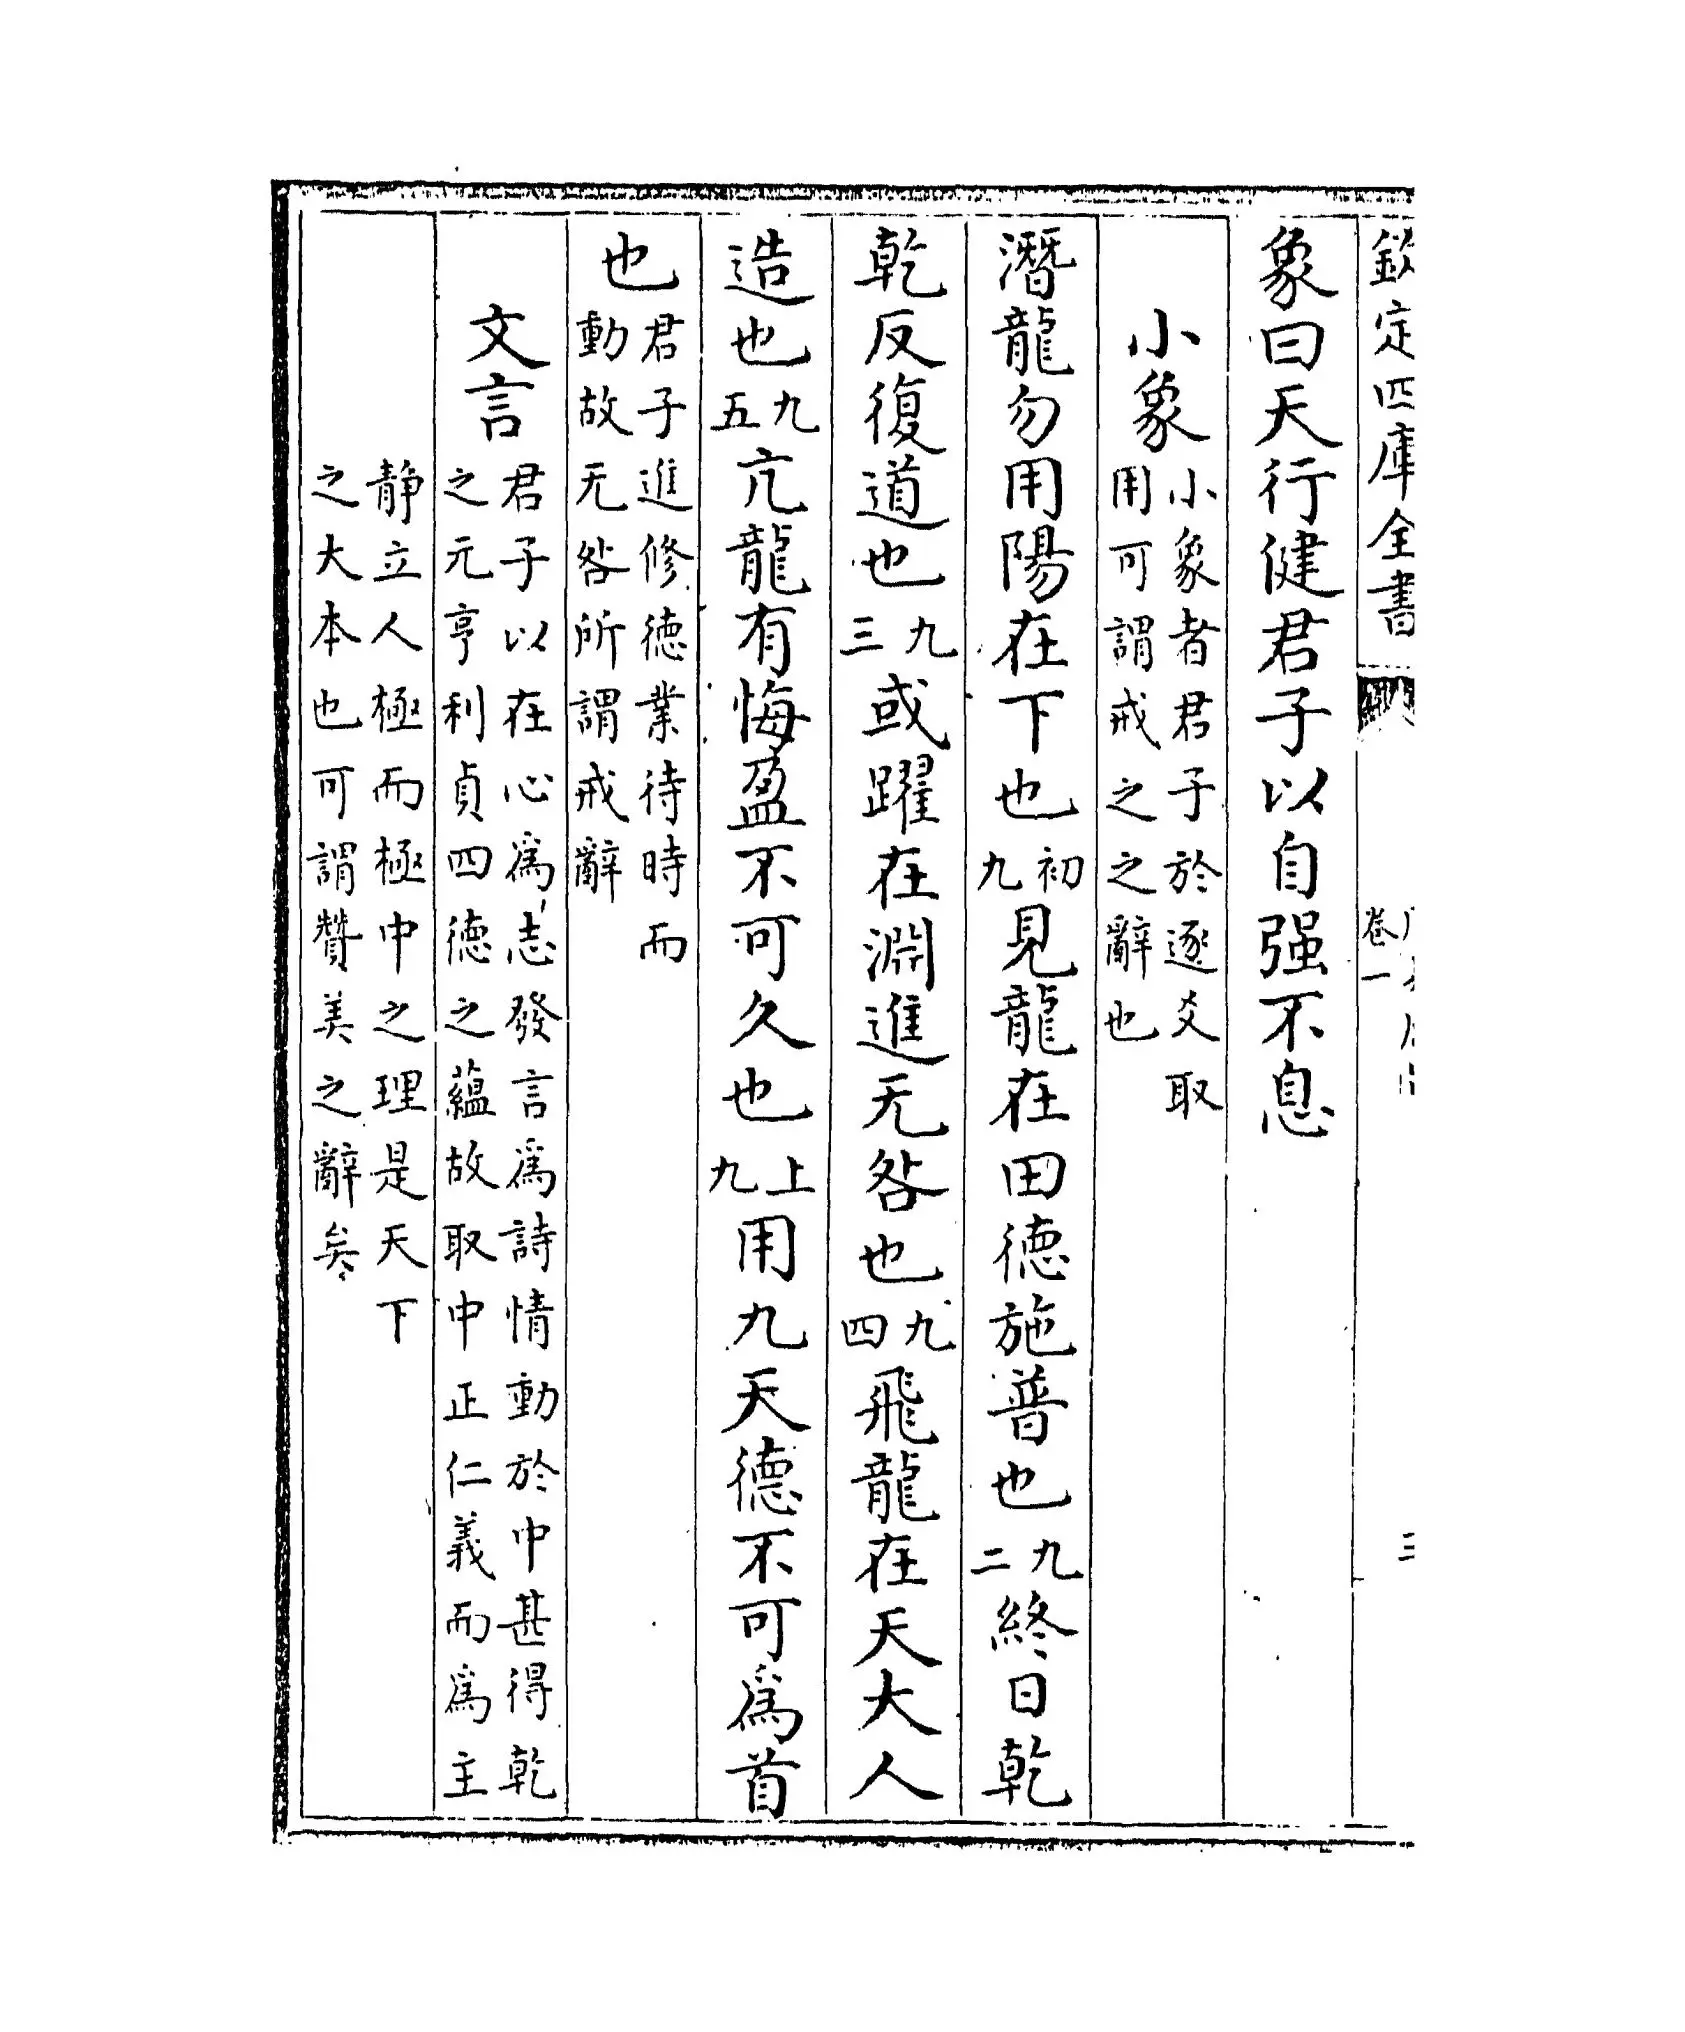 欽定四庫全書
卷一
三
象曰天行健君子以自强不息
小象小象者君子於逐爻取
用可謂戒之之辭也
潛龍勿用陽在下也初九見龍在田德施普也九二終日乾
乾反復道也九三或躍在淵進无咎也九四飛龍在天大人
造也九五亢龍有悔盈不可久也上九用九天德不可為首
也君子進修德業待時而
動故无咎所謂戒辭
文言君子以在心為志發言為詩情動於中甚得乾
之元亨利貞四德之蘊故取中正仁義而為主
静立人極而極中之理是天下
之大本也可謂贊美之辭矣